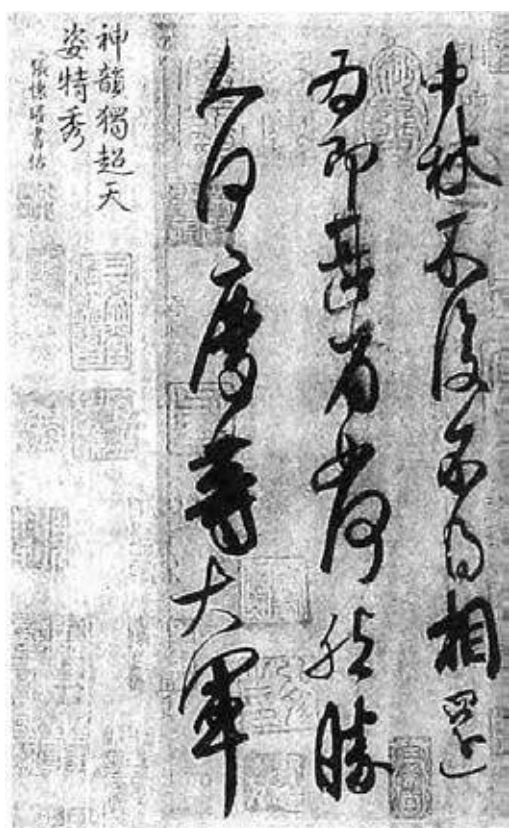 中秋不復不得相還
為即甚省如何然勝
人何慶等大軍
神韻獨超天
姿特秀
張懷瓘書估